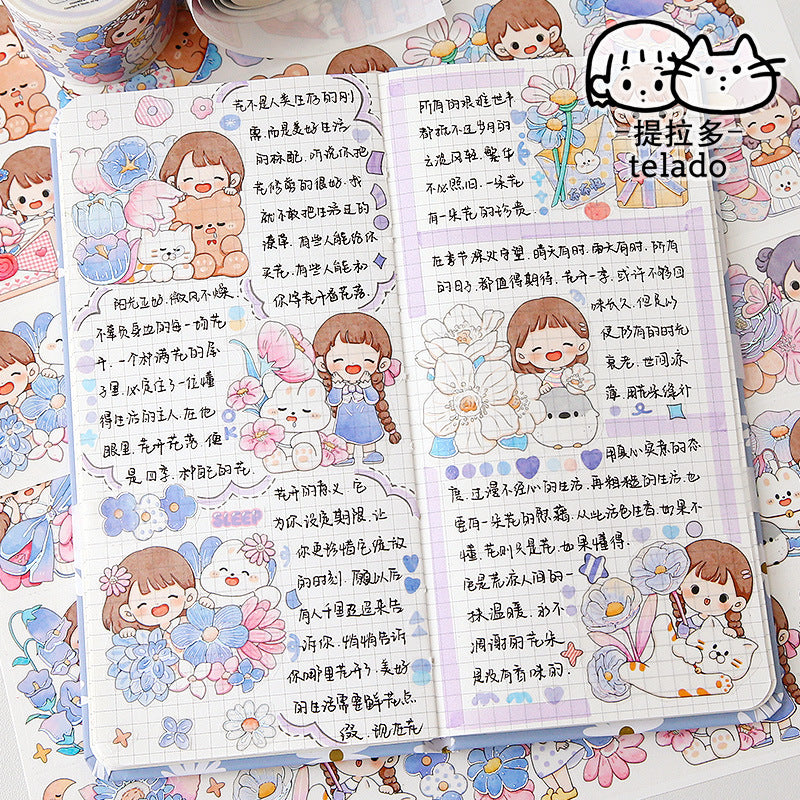 花不是人类生存的刚
需.而是美好生活
的标配.听说你把
花修剪的很好.我
就不敢把生活过的
潦草.有些人能给你
买花.有些人能和
你等花开看花落
阳光正好.微风不燥.
不辜负身边的每一场花
开.一个种满花的屋
子里.必定住了一位懂
得生活的主人.在他
眼里.花开花落.便
是四季.种的花.
OK
SLEEP
花开的意义.它
为你设定期限.让
你更珍惜它绽放
的时刻.愿以后
有人千里迢迢来告
诉你.悄悄告诉
你哪里花开了.美好
的生活需要鲜花点
缀.现在花
所有的艰难世事
都抵不过岁月的
云淡风轻.繁华
不必照旧.一朵花
有一朵花的珍贵.
在春节深处守望.晴天有时.雨天有时.所有
的日子.都值得期待.花开一季.或许不够回
味长久.但足以
使所有的时光
衰老.世间凉
薄.用花朵缝补
用真心实意的态
度.过漫不经心的生活.再粗糙的生活.也
要有一朵花的慰藉.从此活色生香.如果不
懂.花则只是花.如果懂得.
它是荒凉人间的一
抹温暖.永不
凋谢的花朵
是没有香味的.
提拉多
telado